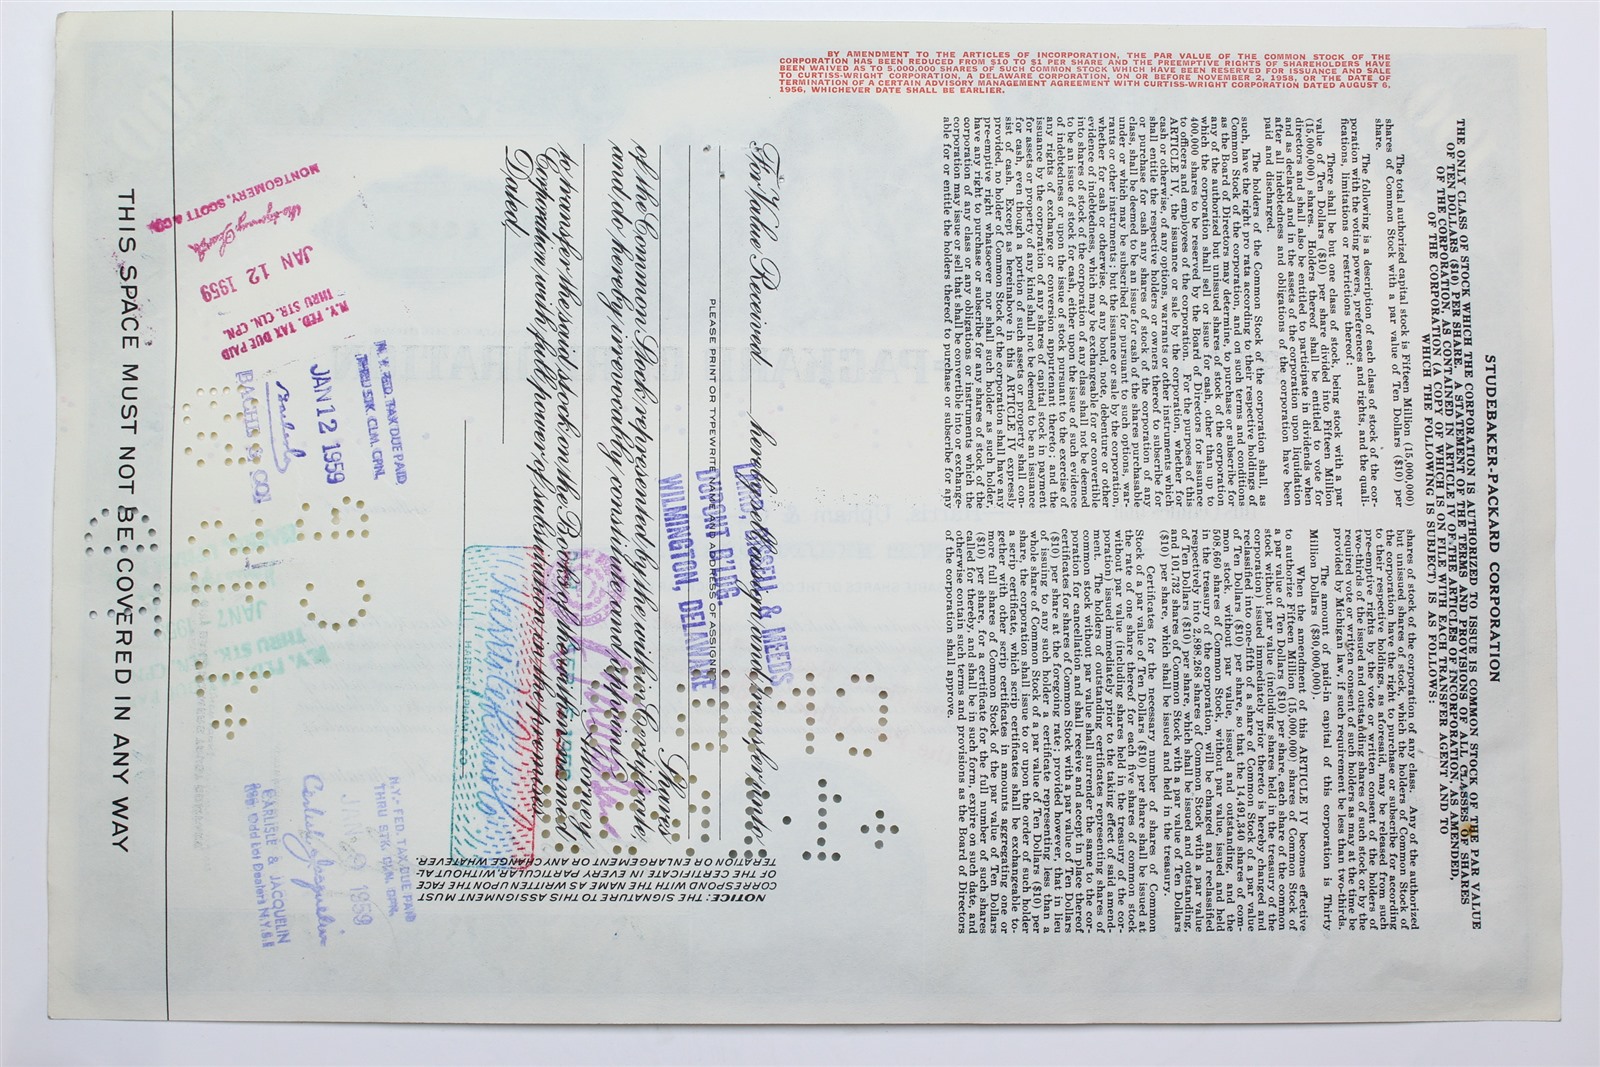 BY AMENDMENT TO THE ARTICLES OF INCORPORATION, THE PAR VALUE OF THE COMMON STOCK OF THE
CORPORATION HAS BEEN REDUCED FROM $10 TO $1 PER SHARE AND THE PREEMPTIVE RIGHTS OF SHAREHOLDERS HAVE
BEEN WAIVED AS TO 5,000,000 SHARES OF SUCH COMMON STOCK WHICH HAVE BEEN RESERVED FOR ISSUANCE AND SALE
TO CURTISS-WRIGHT CORPORATION, A DELAWARE CORPORATION, ON OR BEFORE NOVEMBER 2, 1958, OR THE DATE OF
TERMINATION OF A CERTAIN ADVISORY MANAGEMENT AGREEMENT WITH CURTISS-WRIGHT CORPORATION DATED AUGUST 6,
1956, WHICHEVER DATE SHALL BE EARLIER.
STUDEBAKER-PACKARD CORPORATION
THE ONLY CLASS OF STOCK WHICH THE CORPORATION IS AUTHORIZED TO ISSUE IS COMMON STOCK OF THE PAR VALUE
OF TEN DOLLARS ($10) PER SHARE. A STATEMENT OF THE TERMS AND PROVISIONS OF ALL CLASSES OF SHARES
OF THE CORPORATION, AS CONTAINED IN ARTICLE IV OF THE ARTICLES OF INCORPORATION, AS AMENDED,
OF THE CORPORATION (A COPY OF WHICH IS ON FILE WITH EACH TRANSFER AGENT AND TO
WHICH THE FOLLOWING IS SUBJECT) IS AS FOLLOWS:
The total authorized capital stock is Fifteen Million (15,000,000)
shares of Common Stock with a par value of Ten Dollars ($10) per
share.
The following is a description of each class of stock of the cor-
poration with the voting powers, preferences and rights, and the quali-
fications, limitations or restrictions thereof:
There shall be but one class of stock, being stock with a par
value of Ten Dollars ($10) per share divided into Fifteen Million
(15,000,000) shares. Holders thereof shall be entitled to vote for
directors and shall also be entitled to participate in dividends when
and as declared and in the assets of the corporation upon liquidation
after all indebtedness and obligations of the corporation have been
paid and discharged.
The holders of the Common Stock of the corporation shall, as
such, have the right pro rata according to their respective holdings of
Common Stock of the corporation, and on such terms and conditions
as the Board of Directors may determine, to purchase or subscribe for
any of the authorized but unissued shares of stock of the corporation
which the corporation shall sell or issue for cash, other than up to
400,000 shares to be reserved by the Board of Directors for issuance
to officers and employees of the corporation. For the purposes of this
ARTICLE IV, the issuance or sale by the corporation, whether for
cash or otherwise, of any options, warrants or other instruments which
shall entitle the respective holders or owners thereof to subscribe for
or purchase for cash any shares of stock of the corporation of any
class, shall be deemed to be an issue for cash of the shares purchasable
under or which may be subscribed for pursuant to such options, war-
rants or other instruments; but the issuance or sale by the corporation,
whether for cash or otherwise, of any bond, note, debenture or other
evidence of indebtedness, which may be exchangeable for or convertible
into shares of stock of the corporation of any class shall not be deemed
to be an issue of stock for cash, either upon the issue of such evidence
of indebtedness or upon the issue of stock pursuant to the exercise of
any rights of exchange or conversion appurtenant thereto; and the
issuance by the corporation of any shares of capital stock in payment
for assets or property of any kind shall not be deemed to be an issue
for cash, even though a portion of such assets or property shall con-
sist of cash. Except as hereinabove in this ARTICLE IV expressly
provided, no holder of Common Stock of the corporation shall have any
pre-emptive right whatsoever nor shall such holder, as such holder,
have any right to purchase or subscribe for any shares of stock of the
corporation of any class or any obligations or instruments which the
corporation may issue or sell that shall be convertible into or exchange-
able for or entitle the holders thereof to purchase or subscribe for any
shares of stock of the corporation of any class. Any of the authorized
but unissued shares of stock, which the holders of Common Stock of
the corporation have the right to purchase or subscribe for according
to their respective holdings, as aforesaid, may be released from such
pre-emptive rights by the vote or written consent of the holders of
two-thirds of the issued and outstanding shares of stock or by the
required vote or written consent of such holders as may at the time be
provided by Michigan law, if such requirement be less than two-thirds.
The amount of paid-in capital of this corporation is Thirty
Million Dollars ($30,000,000).
When the amendment of this ARTICLE IV becomes effective
to authorize Fifteen Million (15,000,000) shares of Common Stock of
a par value of Ten Dollars ($10) per share, each share of common
stock without par value (including shares held in the treasury of the
corporation) issued immediately prior thereto is hereby changed and
reclassified into one-fifth of a share of Common Stock of a par value
of Ten Dollars ($10) per share, so that the 14,491,340 shares of com-
mon stock, without par value, issued and outstanding, and the
508,660 shares of common stock, without par value, issued and held
in the treasury of the corporation, will be changed and reclassified
respectively into 2,898,268 shares of Common Stock with a par value
of Ten Dollars ($10) per share, which shall be issued and outstanding,
and 101,732 shares of Common Stock with a par value of Ten Dollars
($10) per share, which shall be issued and held in the treasury.
Certificates for the necessary number of shares of Common
Stock of a par value of Ten Dollars ($10) per share shall be issued at
the rate of one share thereof for each five shares of common stock
without par value (including shares held in the treasury of the cor-
poration) issued immediately prior to the taking effect of said amend-
ment. The holders of outstanding certificates representing shares of
common stock without par value shall surrender the same to the cor-
poration for cancellation and shall receive and accept in place thereof
certificates for shares of Common Stock with a par value of Ten Dollars
($10) per share at the foregoing rate; provided however, that in lieu
of issuing to any such holder a certificate representing less than a
whole share of Common Stock of a par value of Ten Dollars ($10) per
share, the corporation shall issue to or upon the order of such holder
a scrip certificate, which scrip certificates shall be exchangeable to-
gether with other scrip certificates in amounts aggregating one or
more full shares of Common Stock of the par value of Ten Dollars
($10) per share, for a certificate for the full number of such shares
called for thereby, and shall be in such form, expire on such date, and
otherwise contain such terms and provisions as the Board of Directors
of the corporation shall approve.
For Value Received, hereby sell, assign and transfer unto
LAIRD, BISSELL & MEEDS
DUPONT B'LDG.
WILMINGTON, DELAWARE
PLEASE PRINT OR TYPEWRITE NAME AND ADDRESS OF ASSIGNEE
Shares
of the Common Stock represented by the within Certificate,
and do hereby irrevocably constitute and appoint
Attorney
to transfer the said stock on the Books of the within named
Corporation with full power of substitution in the premises.
Dated,
HARRIS, UPHAM & CO
NOTICE: THE SIGNATURE TO THIS ASSIGNMENT MUST
CORRESPOND WITH THE NAME AS WRITTEN UPON THE FACE
OF THE CERTIFICATE IN EVERY PARTICULAR WITHOUT AL-
TERATION OR ENLARGEMENT OR ANY CHANGE WHATEVER.
N.Y. FED. TAX DUE PAID
THRU STK. CLM. CPN.
JAN 12 1959
BACHE & CO.
N.Y. FED. TAX DUE PAID
THRU STK. CLN. CPN.
JAN 12 1959
MONTGOMERY, SCOTT & CO.
N.Y. FED. TAX DUE PAID
THRU STK. CLN. CPN.
JAN 9 1959
Carlisle & Jacquelin
CARLISLE & JACQUELIN
Odd Lot Dealers N.Y.S.E
JAN 7
THRU STK.
THIS SPACE MUST NOT BE COVERED IN ANY WAY